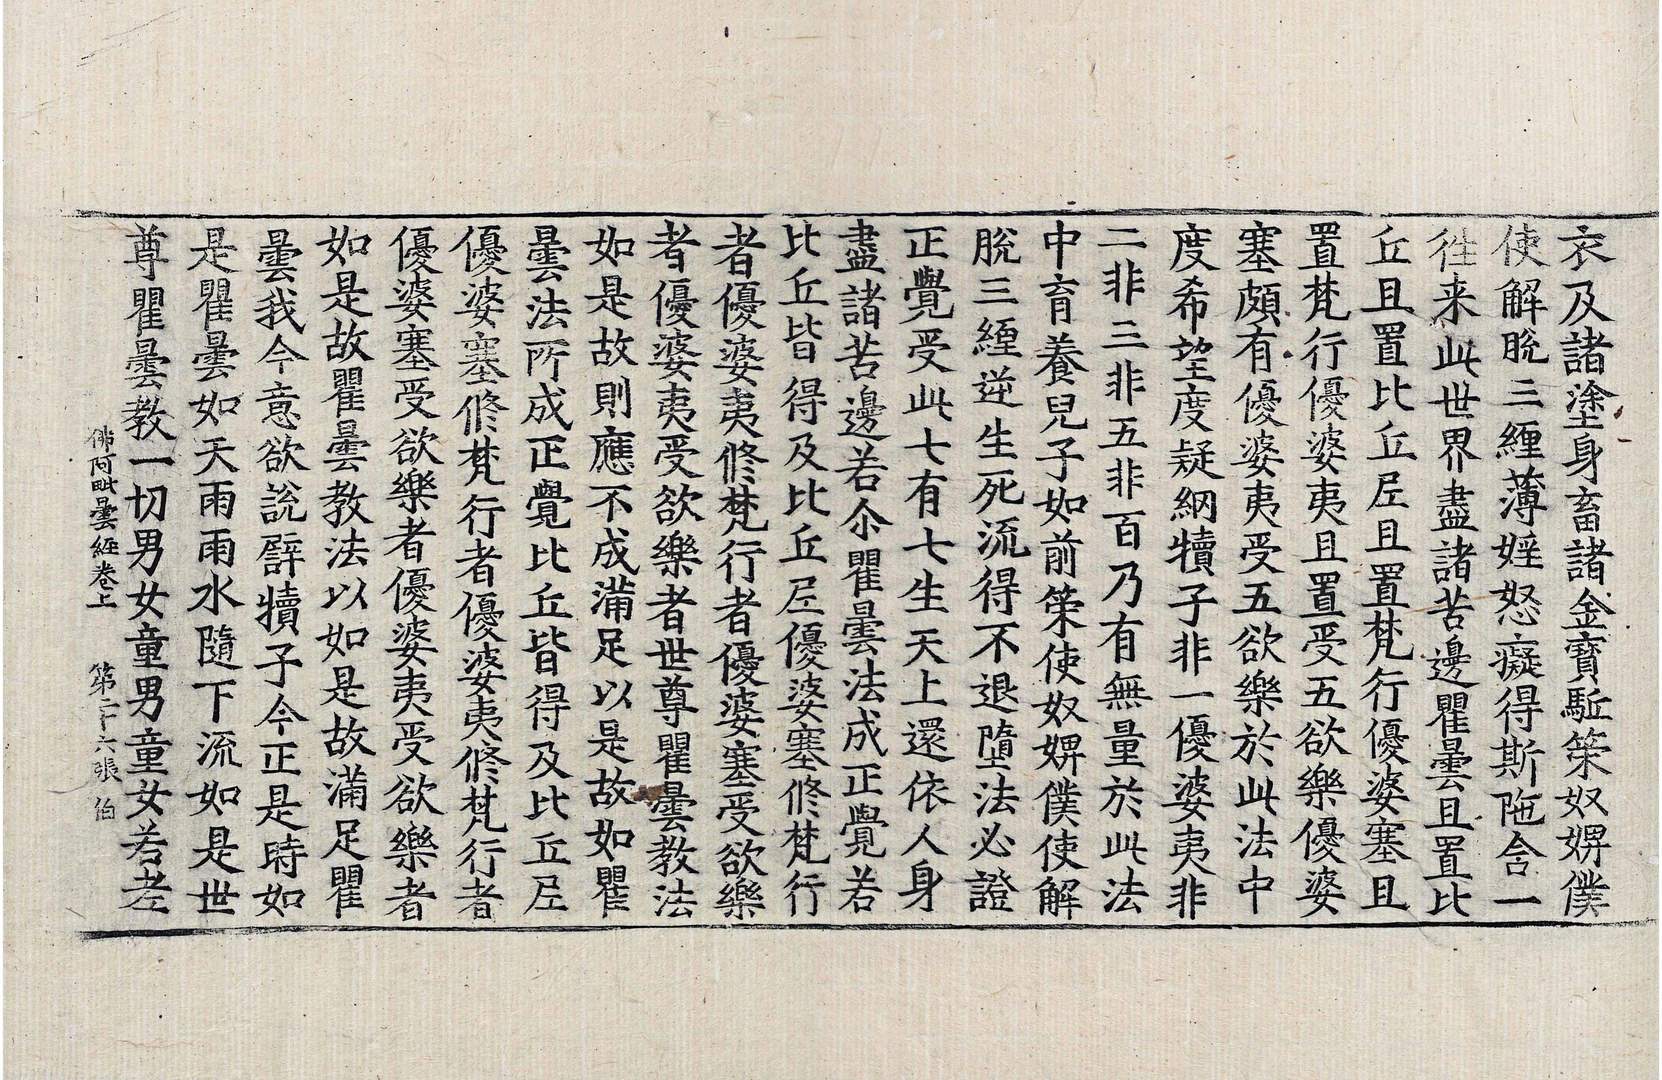 衣及諸塗身畜諸金寶駈䇿奴婢僕
使解脫三纏薄婬怒癡得斯陁含一
往来此世界盡諸苦邊瞿曇且置比
丘且置比丘尼且置梵行優婆塞且
置梵行優婆夷且置受五欲樂優婆
塞頗有優婆夷受五欲樂於此法中
度希望度疑網犢子非一優婆夷非
二非三非五非百乃有無量於此法
中育養兒子如前䇿使奴婢僕使解
脫三纏逆生死流得不退墮法必證
正覺受此七有七生天上還依人身
盡諸苦邊若尒瞿曇法成正覺若
比丘皆得及比丘尼優婆塞修梵行
者優婆夷修梵行者優婆塞受欲樂
者優婆夷受欲樂者世尊瞿曇教法
如是故則應不成滿足以是故如瞿
曇法所成正覺比丘皆得及比丘尼
優婆塞修梵行者優婆夷修梵行者
優婆塞受欲樂者優婆夷受欲樂者
如是故瞿曇教法以如是故滿足瞿
曇我今意欲說譬犢子今正是時如
是瞿曇如天雨雨水隨下流如是世
尊瞿曇教一切男女童男童女若老
佛阿毗曇經卷上 第二十六張 伯